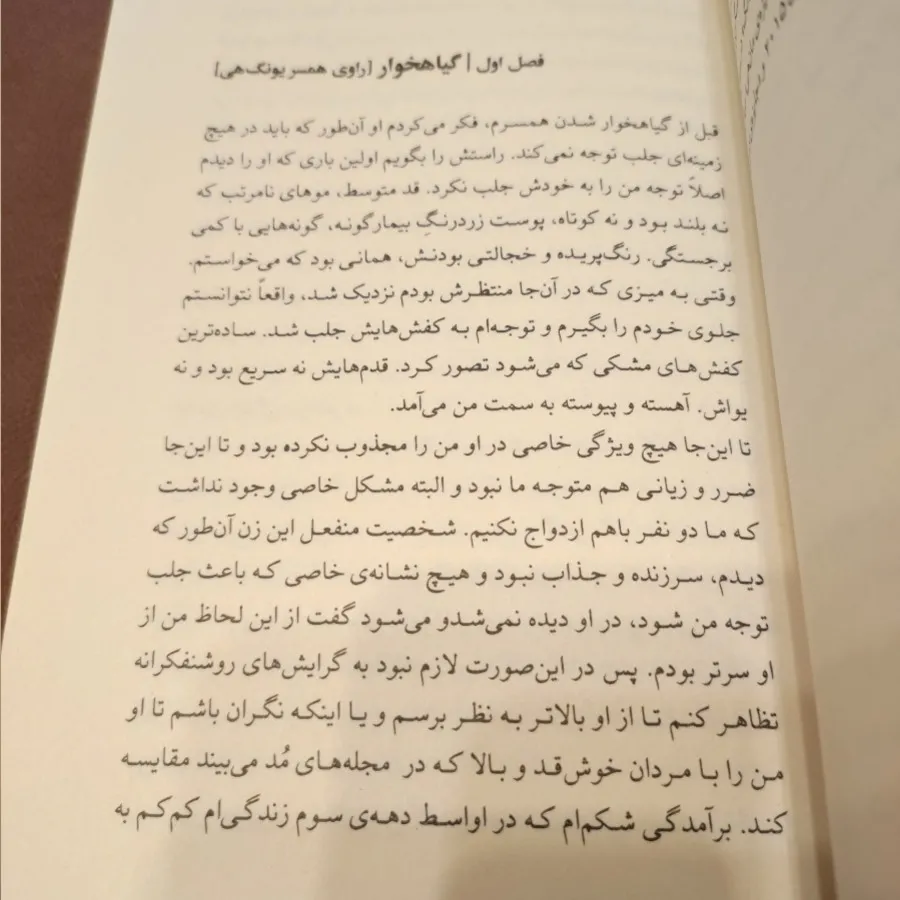 فصل اول | گیاهخوار [راوی همسر یونگ‌هی]
قبل از گیاهخوار شدن همسرم، فکر می‌کردم او آن‌طور که باید در هیچ
زمینه‌ای جلب توجه نمی‌کند. راستش را بگویم اولین باری که او را دیدم
اصلاً توجه من را به خودش جلب نکرد. قد متوسط، موهای نامرتب که
نه بلند بود و نه کوتاه، پوست زردرنگِ بیمارگونه، گونه‌هایی با کمی
برجستگی. رنگ‌پریده و خجالتی بودنش، همانی بود که می‌خواستم.
وقتی به میزی که در آن‌جا منتظرش بودم نزدیک شد، واقعاً نتوانستم
جلوی خودم را بگیرم و توجه‌ام به کفش‌هایش جلب شد. ساده‌ترین
کفش‌های مشکی که می‌شود تصور کرد. قدم‌هایش نه سریع بود و نه
یواش. آهسته و پیوسته به سمت من می‌آمد.
تا این‌جا هیچ ویژگی خاصی در او من را مجذوب نکرده بود و تا این‌جا
ضرر و زیانی هم متوجه ما نبود و البته مشکل خاصی وجود نداشت
که ما دو نفر باهم ازدواج نکنیم. شخصیت منفعل این زن آن‌طور که
دیدم، سرزنده و جذاب نبود و هیچ نشانه‌ی خاصی که باعث جلب
توجه من شود، در او دیده نمی‌شدو می‌شود گفت از این لحاظ من از
او سرتر بودم. پس در این‌صورت لازم نبود به گرایش‌های روشنفکرانه
تظاهر کنم تا از او بالاتر به نظر برسم و یا اینکه نگران باشم تا او
من را با مردان خوش‌قد و بالا که در مجله‌های مُد می‌بیند مقایسه
کند. برآمدگی شکم‌ام که در اواسط دهه‌ی سوم زندگی‌ام کم‌کم به